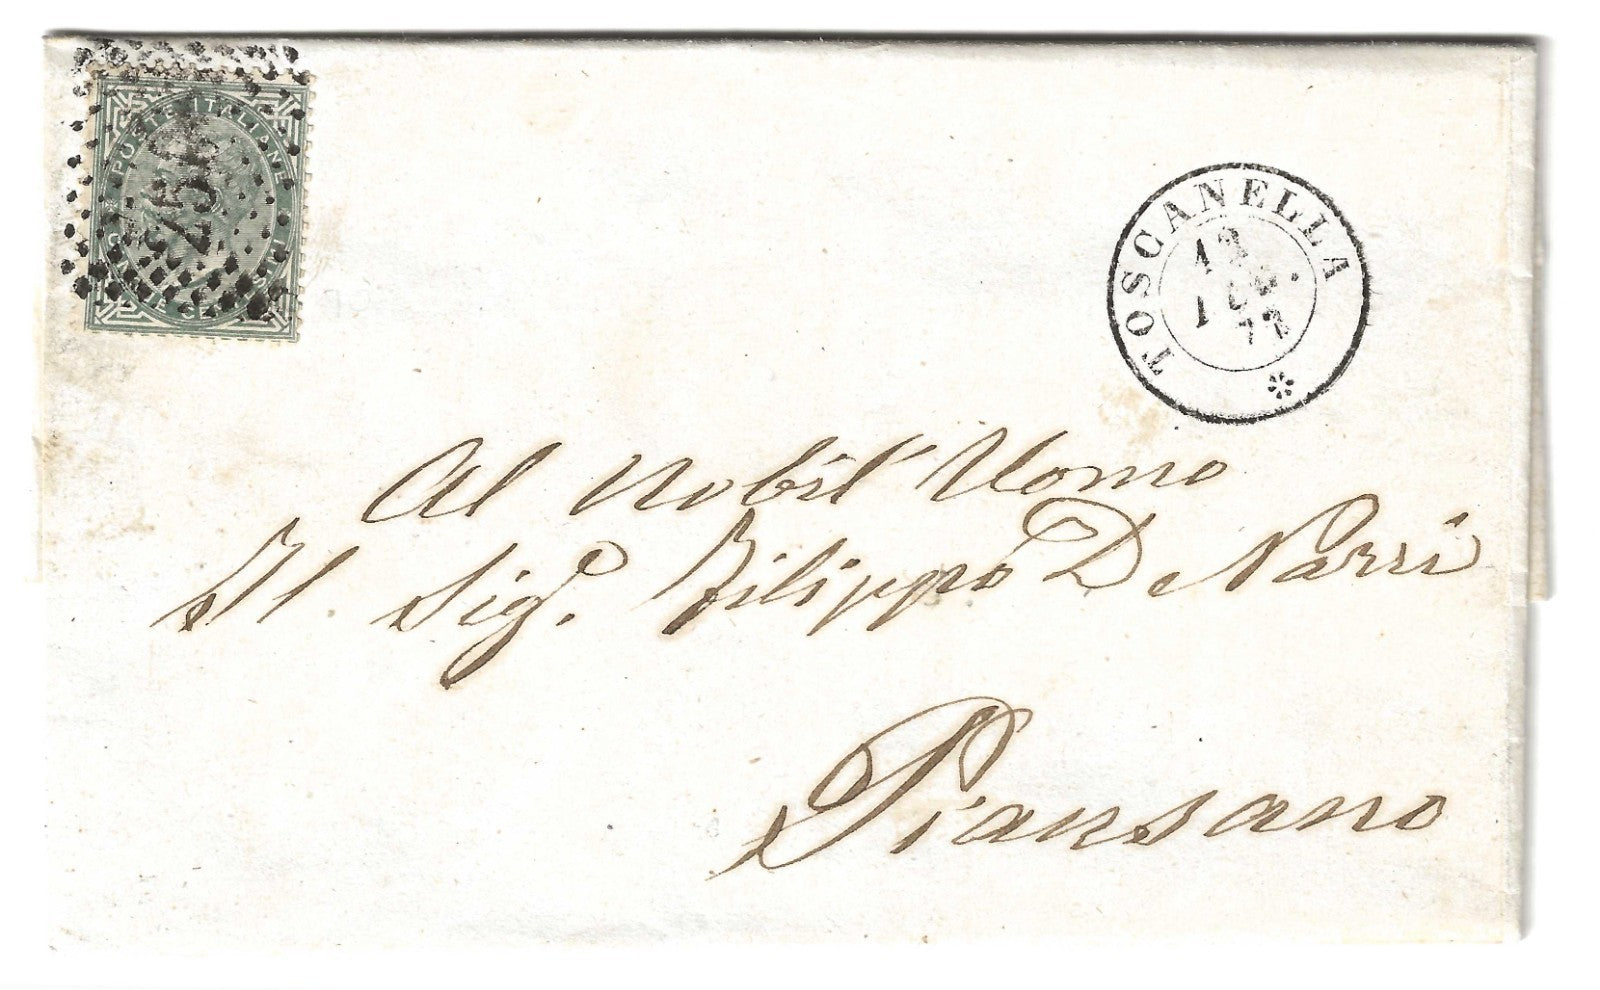 POSTE ITALIANE
TOSCANELLA
77
Al Nobil' Uomo
Il Sigr. Filippo De Narri
Piansano